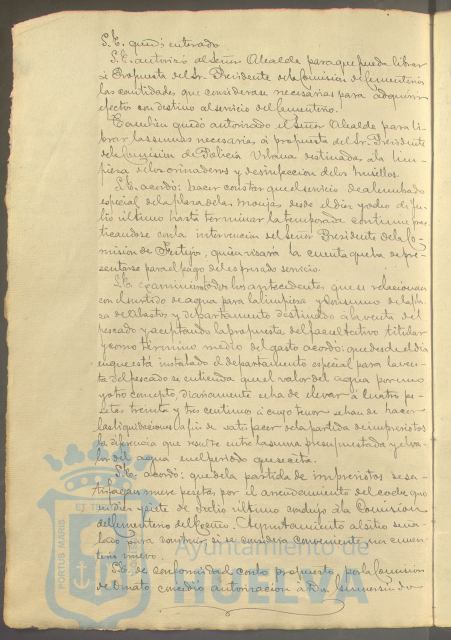 S.E. quedó enterado.
S.E. autorizó al Señor Alcalde para que pueda librar
á propuesta del Sr. Presidente de la Comisión de Cementerios
las cantidades que considerase necesarias para adquirir
efectos con destino al servicio del Cementerio.
También quedó autorizado el Señor Alcalde para li-
brar las sumas necesarias, á propuesta del Sr. Presidente
de la Comisión de Policía Urbana destinadas á la lim-
pieza de los urinaderos y desinfección de los muelles.
S.E. acordó: hacer constar que el servicio de alumbrado
especial de la plaza de las Monjas desde el diez y ocho de Ju-
lio último hasta terminar la temporada continue prac-
ticandose con la intervención del Señor Presidente de la Co-
misión de Festejos, quien visará la cuenta que ha de pre-
sentarse para el pago del expresado servicio.
S.E. examinados los antecedentes que se relacionan
con el surtido de agua para la limpieza y consumo de la pla-
za de Abastos y departamento destinado á la venta del
pescado y aceptando la propuesta del facultativo titular
y como término medio del gasto acordó: que desde el dia
en que está instalado el departamento especial para la ven-
ta del pescado se entienda que el valor del agua por uno
y otro concepto, diariamente se ha de elevar á cuatro pe-
setas treinta y tres centimos á cuyo tenor se han de hacer
las liquidaciones á fin de satisfacer de la partida de imprevistos
la diferencia que resulte entre la suma presupuestada y el va-
lor del agua en el periodo que se cita.
S.E. acordó: que de la partida de imprevistos se sa-
tisfagan nueve pesetas, por el arrendamiento del coche que
en diez y siete de Julio último condujo á la Comisión
del Cementerio del Excmo. Ayuntamiento al sitio seña-
lado para construir, si se considera conveniente, un cemen-
terio nuevo.
S.E. de conformidad con lo propuesto por la Comisión
de Ornato concedió autorización á Dn. Gumersindo
PORTUS MARIS ET TERRAE
Ayuntamiento de
HUELVA